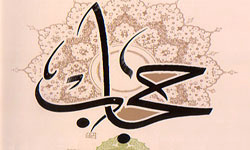 حجاب